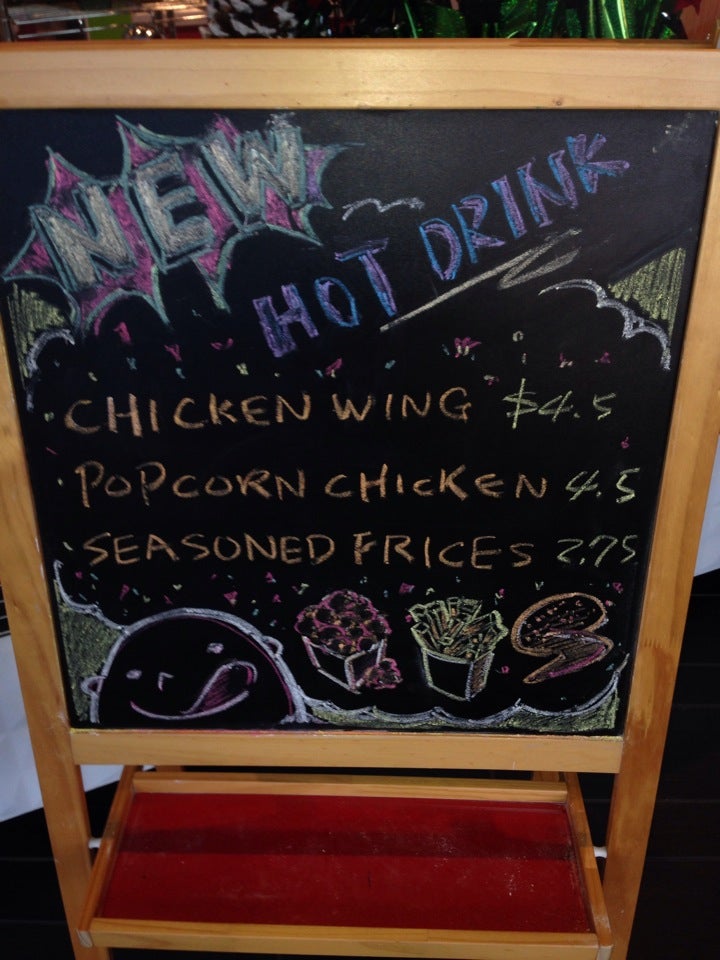 NEW
HOT DRINK
· CHICKEN WING $4.5
· POPCORN CHICKEN 4.5
· SEASONED FRICES 2.75